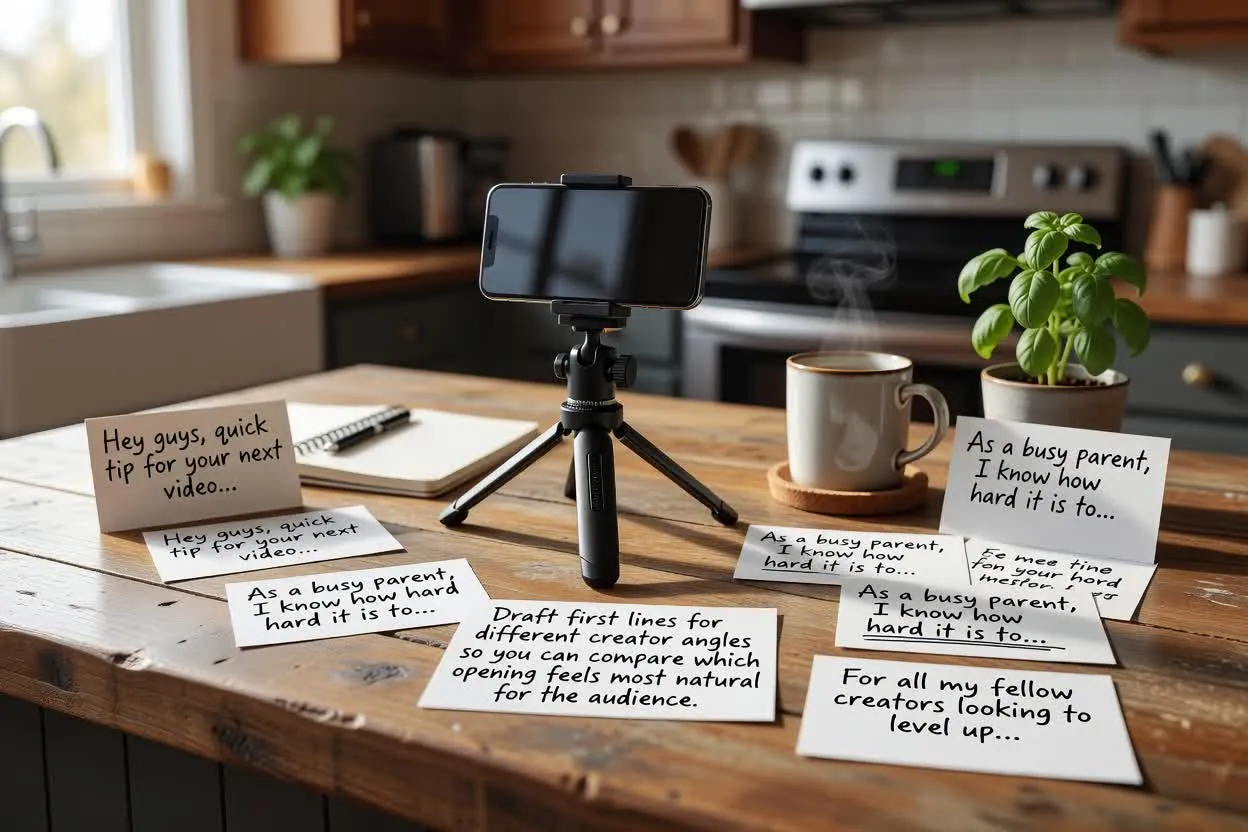 Hey guys, quick
tip for your next
video...
Hey guys, quick
tip for your next
video...
As a busy parent,
I know how hard
hard it is to...
Draft first lines for
different creator angles
so you can compare which
opening feels most natural
for the audience.
As a busy parent,
I know how
hard it is to...
As a busy parent,
I know how
hard it is to...
your hord
As a busy parent,
I know how
hard it is to...
For all my fellow
creators looking to
level up...